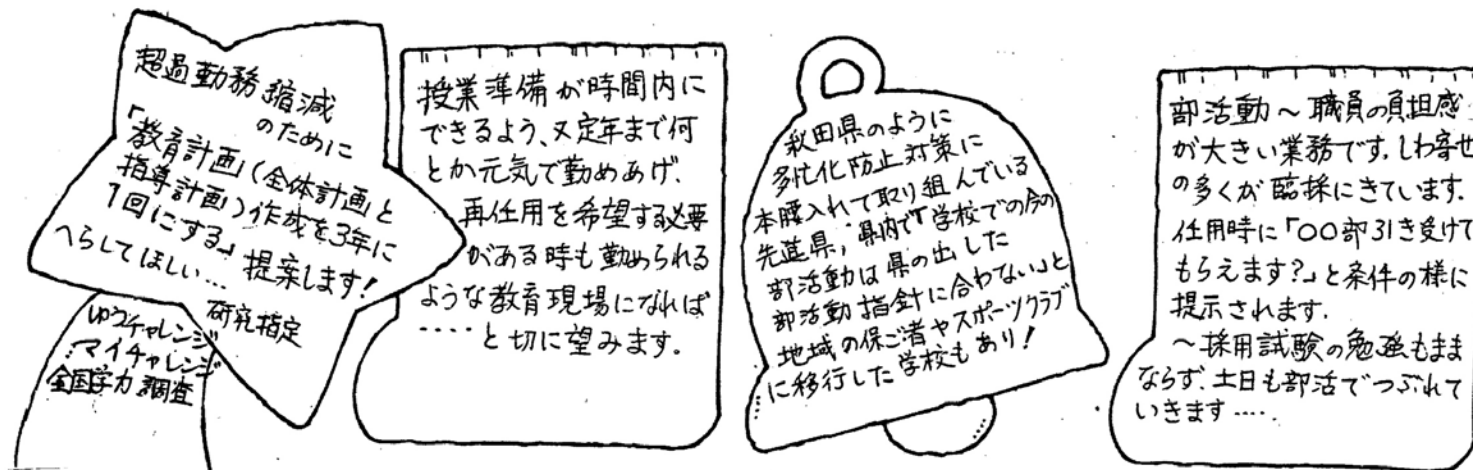 超過勤務縮減
のために
「教育計画(全体計画と
指導計画)作成を3年に
1回にする」提案します!
へらしてほしい…
研究指定
ゆうチャレンジ
マイチャレンジ
全国学力調査
授業準備が時間内に
できるよう、又定年まで何
とか元気で勤めあげ、
再任用を希望する必要
がある時も勤められる
ような教育現場になれば
‥‥と切に望みます。
秋田県のように
多忙化防止対策に
本腰入れて取り組んでいる
先進県;県内で「学校での今の
部活動は県の出した
部活動指針に合わない」と
地域の保ご者やスポーツクラブ
に移行した学校もあり!
部活動~職員の負担感
が大きい業務です。しわ寄せ
の多くが臨採にきています。
任用時に「〇〇部引き受けて
もらえます?」と条件の様に
提示されます。
~採用試験の勉強もまま
ならず、土日も部活でつぶれて
いきます‥‥.